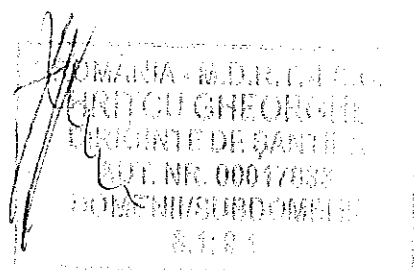 ROMANIA - M.D.R.T.
HRITCU GHEORGHE
DIRIGINTE DE ŞANTIER
AUT. NR. 00017
DOMENII/SUBDOMENII
8.1;